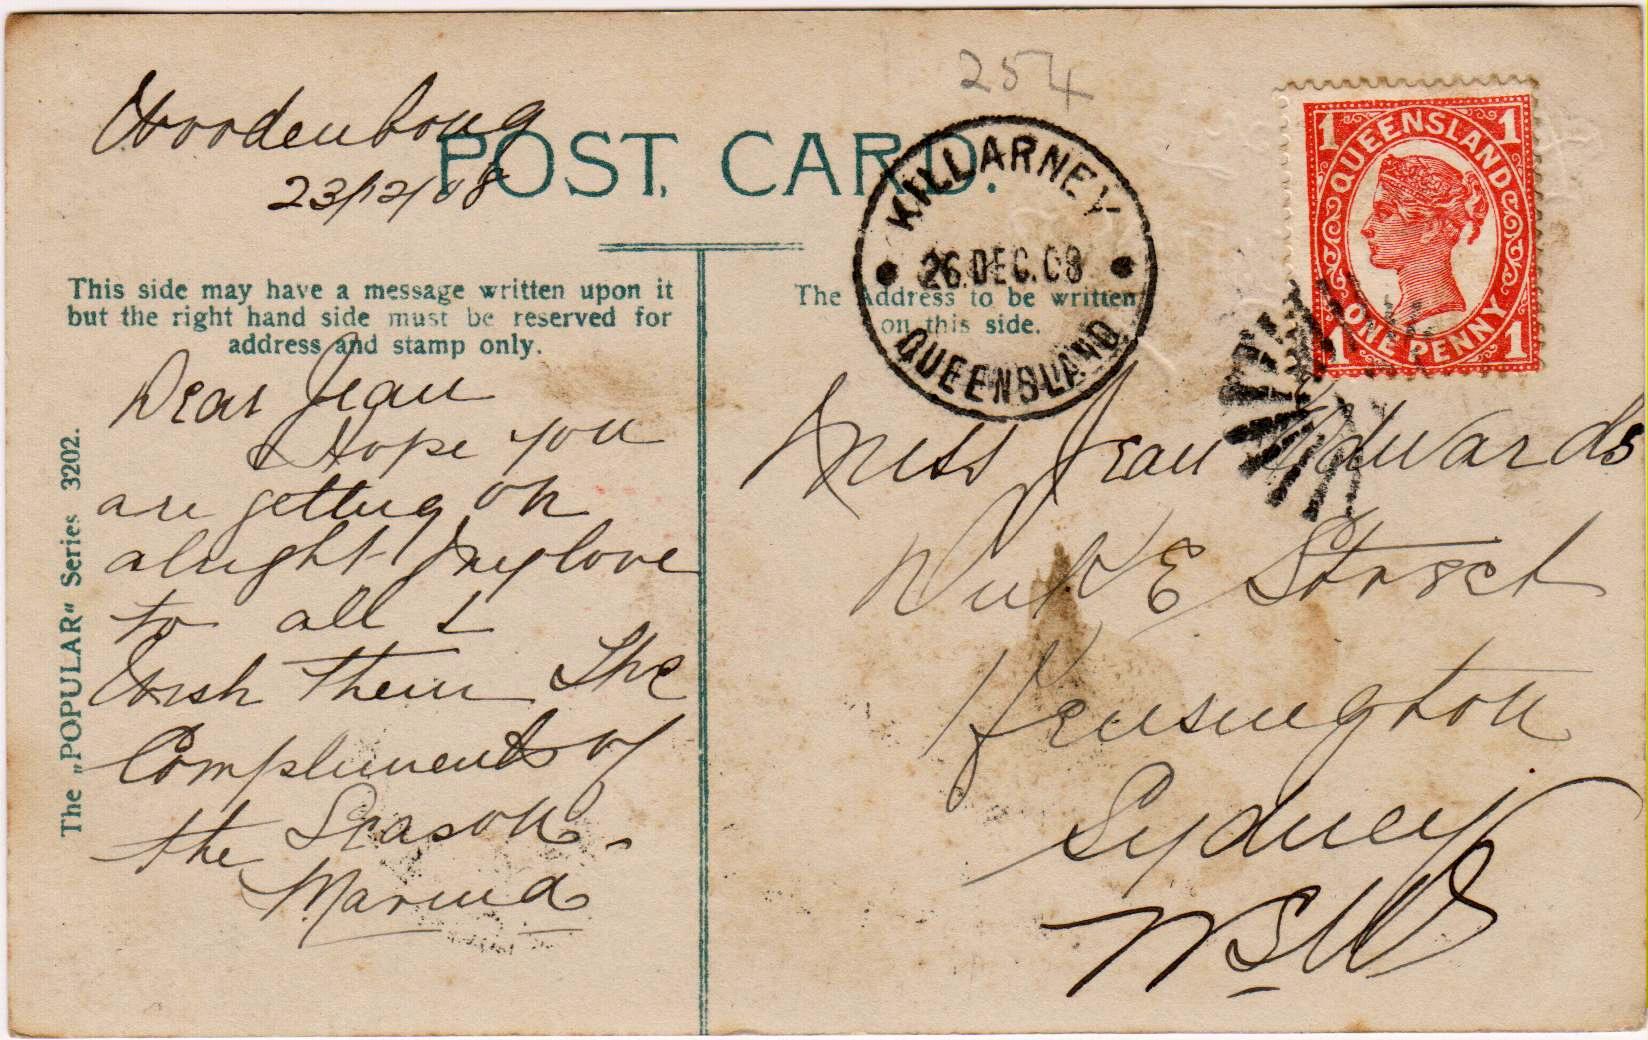 254
Woodenbong
23/12/08
POST CARD.
KILLARNEY
26.DEC.08
QUEENSLAND
1 QUEENSLAND 1
1 ONE PENNY 1
This side may have a message written upon it
but the right hand side must be reserved for
address and stamp only.
The Address to be written
on this side.
The „POPULAR" Series 3202.
Dear Jean
Hope you
are getting on
alright My love
to all &
Wish them The
Compliments of
the Season.
Marina
Miss Jean Edwards
Duke Street
Kensington
Sydney
NSW